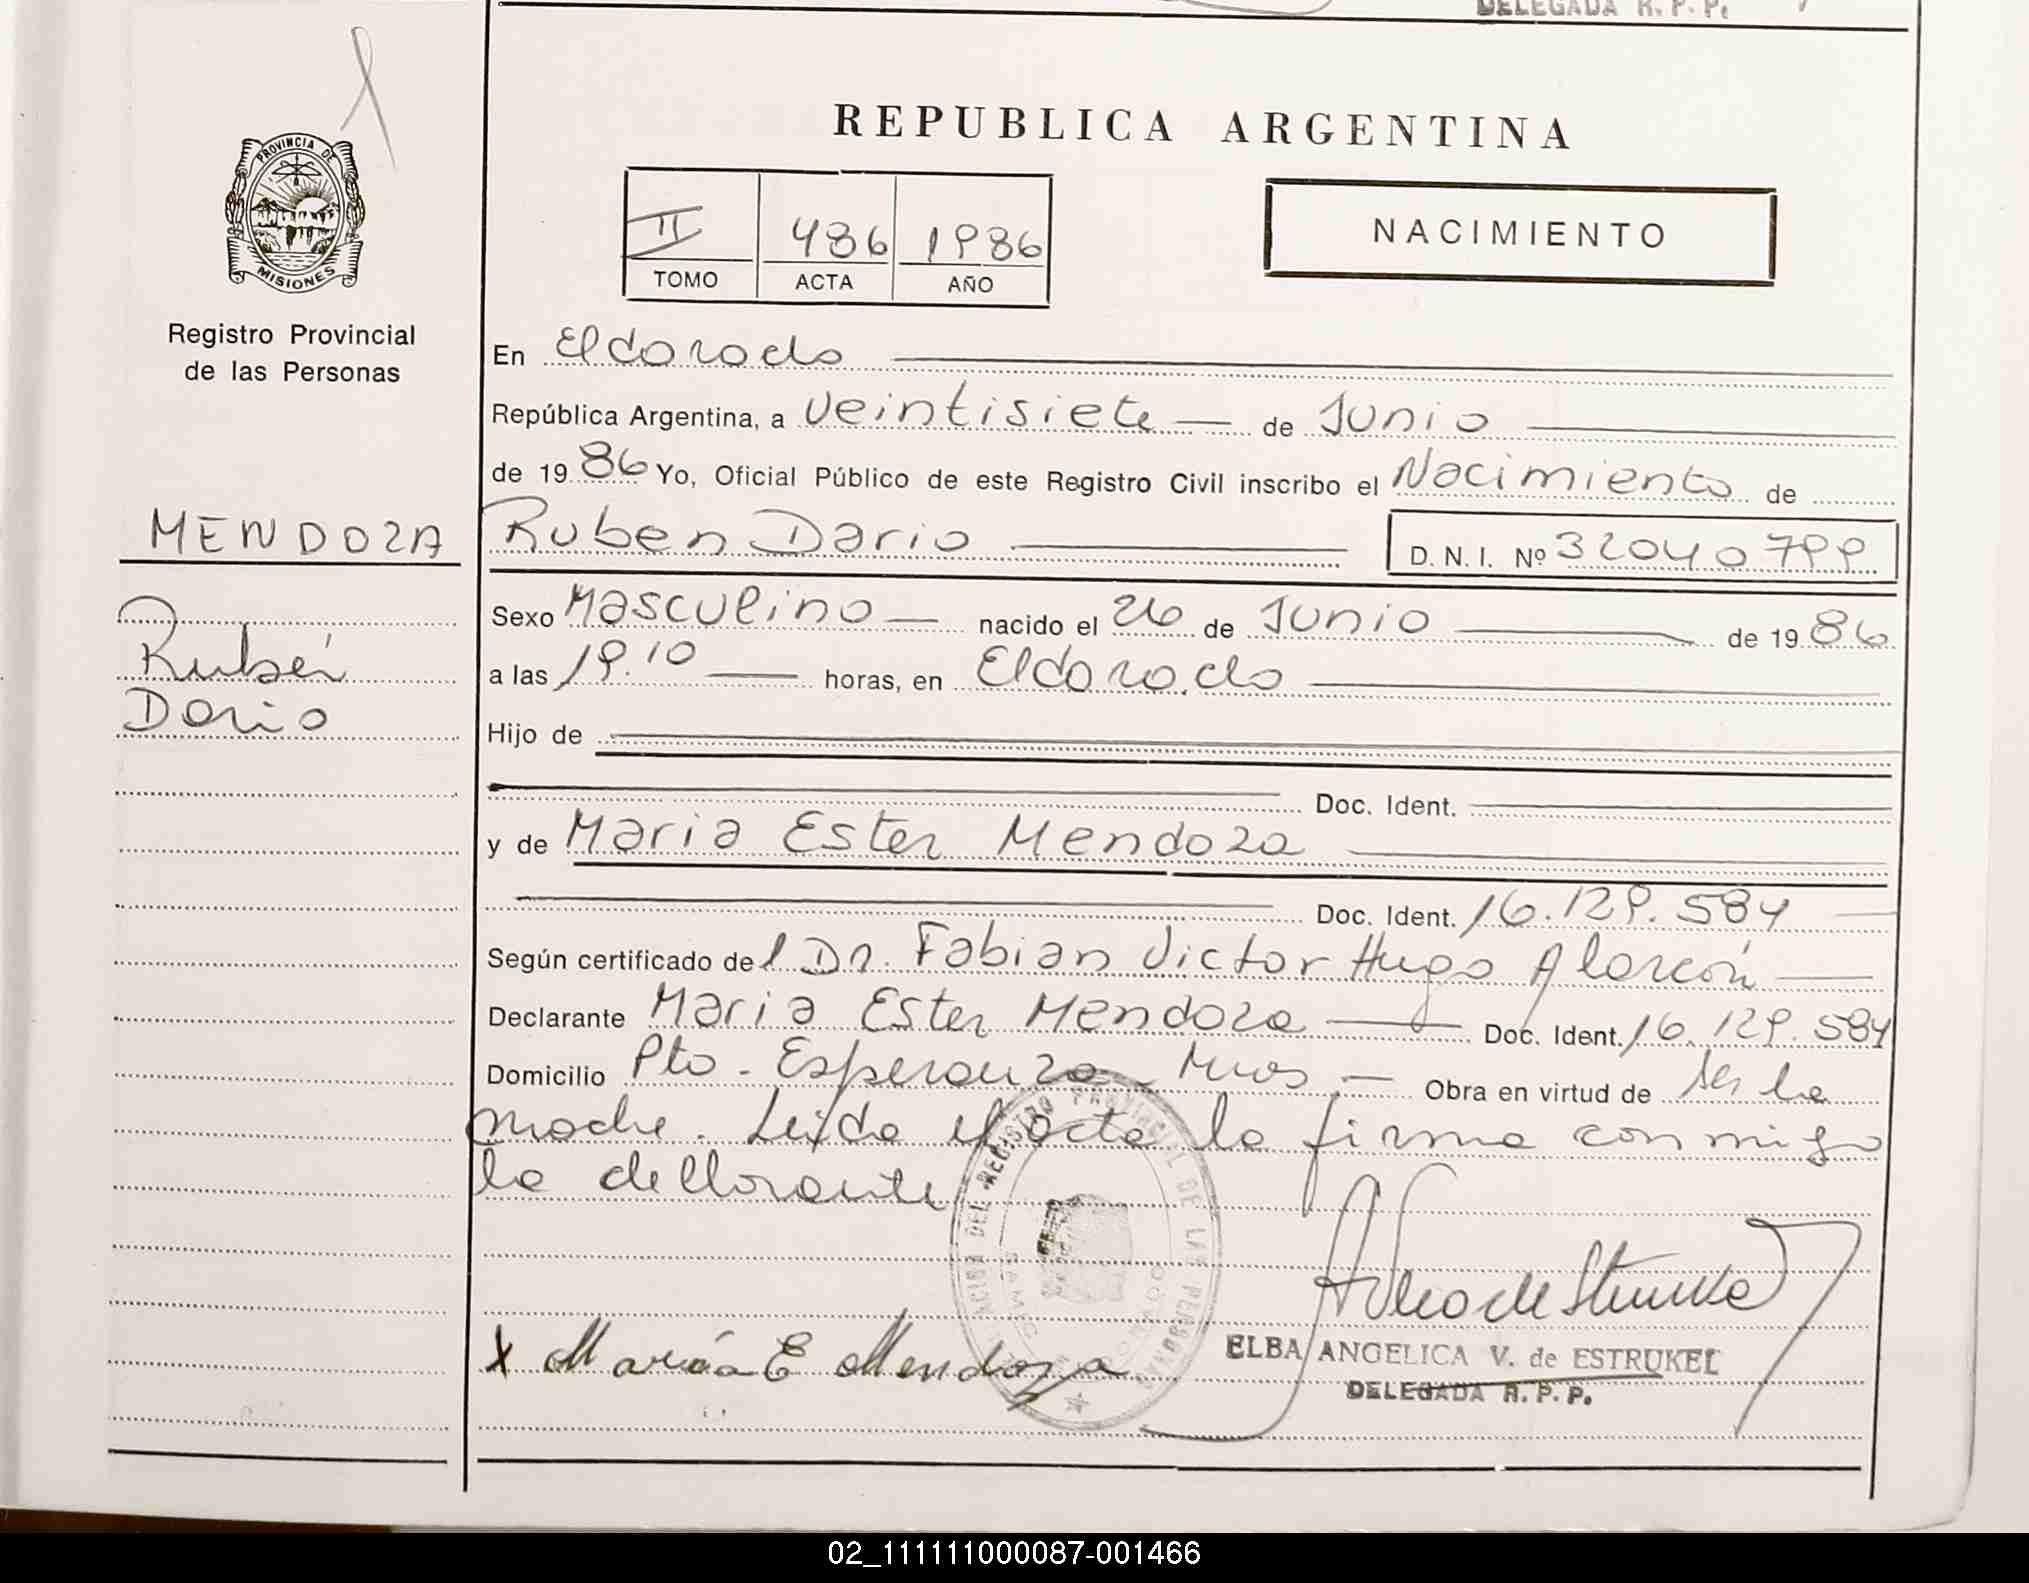 DELEGADA R. P. P.
REPUBLICA ARGENTINA
PROVINCIA DE
MISIONES
II 486 1986
TOMO ACTA AÑO
NACIMIENTO
Registro Provincial
de las Personas
En Eldorado
República Argentina, a veintisiete de Junio
de 1986 Yo, Oficial Público de este Registro Civil inscribo el Nacimiento de
MENDOZA
Ruben Dario D. N. I. Nº 32040799
Rubén
Dario
Sexo Masculino nacido el 26 de Junio de 1986
a las 19.10 horas, en Eldorado
Hijo de
Doc. Ident.
y de Maria Ester Mendoza
Doc. Ident. 16.129.584
Según certificado del Dr. Fabian Victor Hugo Alarcón
Declarante Maria Ester Mendoza Doc. Ident. 16.129.584
Domicilio Pto. Esperanza Mnes Obra en virtud de ser la
madre. Leida el acta la firma conmigo
la declarante
REGISTRO PROVINCIAL DE LAS PERSONAS
X María E Mendoza
ELBA ANGELICA V. de ESTRUKEL
DELEGADA R. P. P.
02_111111000087-001466